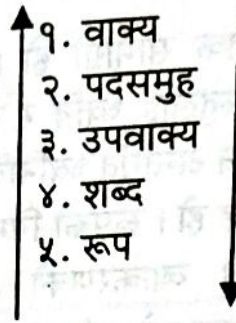 १. वाक्य
२. पदसमुह
३. उपवाक्य
४. शब्द
५. रूप